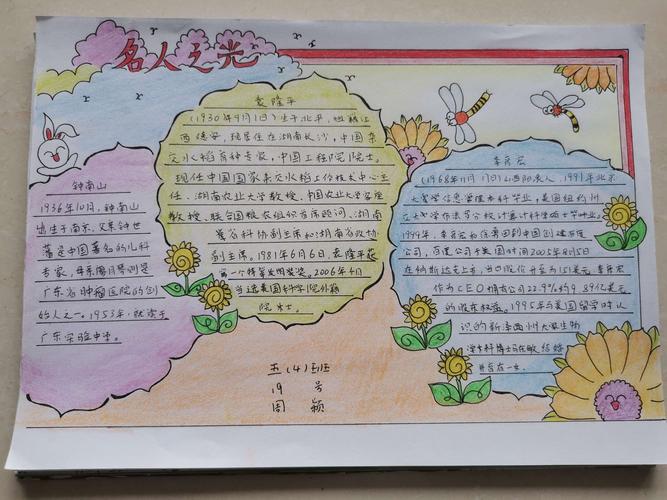 名人之光
钟南山
1936年10月，钟南山
出生于南京，父亲钟世
藩是中国著名的儿科
专家，母亲廖月琴则是
广东省肿瘤医院的创
始人之一。1953年，就读于
广东实验中学。
袁隆平
(1930年9月1日)生于北平，祖籍江
西德安，现居住在湖南长沙，中国杂
交水稻育种专家，中国工程院院士。
现任中国国家杂交水稻工作技术中心主
任、湖南农业大学教授、中国农业大学客座
教授、联合国粮农组织首席顾问、湖南
省科协副主席和湖南省政协
副主席。1981年6月6日，袁隆平获
第一个特等发明奖。2006年4月
当选美国科学院外籍
院士。
李彦宏
(1968年11月17日)山西阳泉人，1991年北京
大学信息管理专科毕业，美国纽约州
立大学布法罗分校计算计科学硕士毕业。
1999年，李彦宏和徐勇回到中国创建百度
公司，百度公司于美国时间2005年8月5日
在纳斯达克上市，当日股价升至为151美元，李彦宏
作为CEO拥有公司22.9%约9.89亿美元
的股东权益。1995年与美国留学时认
识的新泽西州大学生物
系博士马东敏结婚
并育有一女
五(4)班
19号
周颖